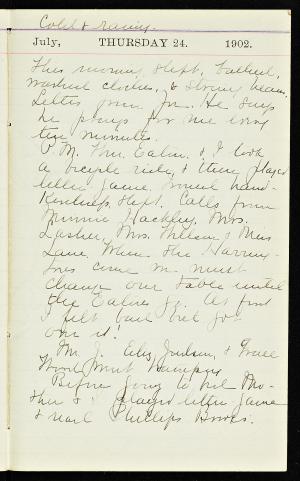 Cold & rainy.
July, THURSDAY 24. 1902.
This morning slept, talked,
washed clothes, & strung beans.
Letter from Jn. He says
he prays for me every
ten minutes.
P.M. Thr. Eaton, & I took
a bicycle ride, & then played
letter game. hand-
kerchiefs. Slept. Calls from
Minnie Hackley, Mrs.
Lasher, Mrs. Wilson & Miss
Lane. When the Harring-
tons come we must
change our table until
the Eatons go. At first
I felt bad but got
over it!
Mr. J. Eliz. Judson, & Grace
Wood went
Before going to bed Mo-
ther & I played letter game
& read Phillips Brooks.